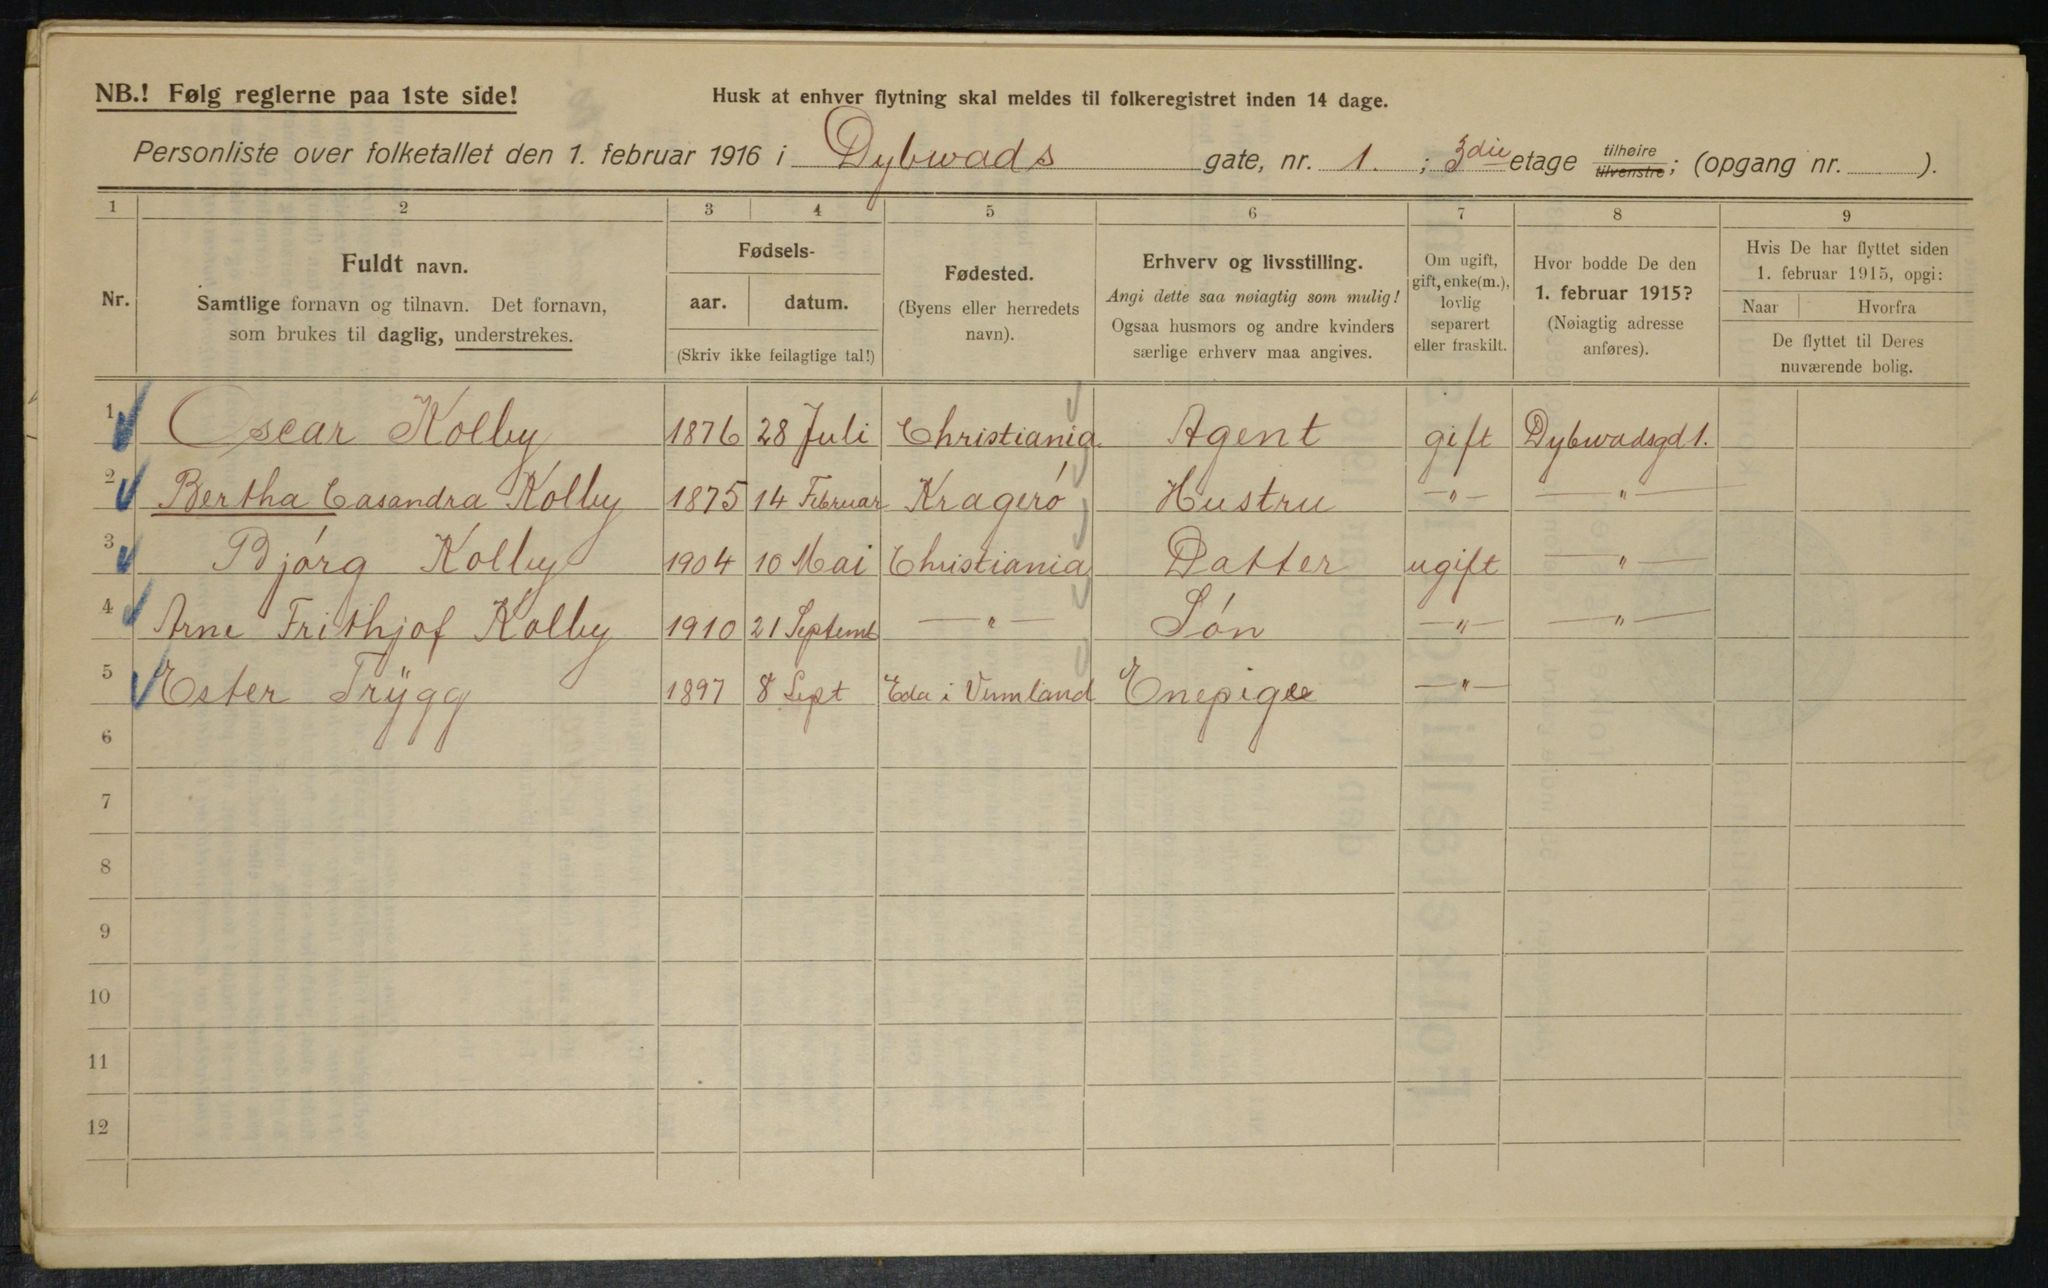 NB.! Følg reglerne paa 1ste side!
Husk at enhver flytning skal meldes til folkeregistret inden 14 dage.
Personliste over folketallet den 1. februar 1916 i Dybwads gate, nr. 1. ; 3die etage tilhøire tilvenstre; (opgang nr. ).
1 2 3 4 5 6 7 8 9
Nr.
Fuldt navn.
Samtlige fornavn og tilnavn. Det fornavn,
som brukes til daglig, understrekes.
Fødsels-
aar. datum.
(Skriv ikke feilagtige tal!)
Fødested.
(Byens eller herredets
navn).
Erhverv og livsstilling.
Angi dette saa nøiagtig som mulig!
Ogsaa husmors og andre kvinders
særlige erhverv maa angives.
Om ugift,
gift, enke(m.),
lovlig
separert
eller fraskilt.
Hvor bodde De den
1. februar 1915?
(Nøiagtig adresse
anføres).
Hvis De har flyttet siden
1. februar 1915, opgi:
Naar Hvorfra
De flyttet til Deres
nuværende bolig.
1 Oscar Kolby 1876 28 Juli Christiania Agent gift Dybwadsgd 1.
2 Bertha Casandra Kolby 1875 14 Februar Krageró Hustru —"— —"—
3 Bjórg Kolby 1904 10 Mai Christiania Datter ugift —"—
4 Arne Frithjof Kolby 1910 21 Septemb —"— Són —"— —"—
5 Ester Trÿgg 1897 8 Sept Eda i Vermland Enepige —"—
6
7
8
9
10
11
12